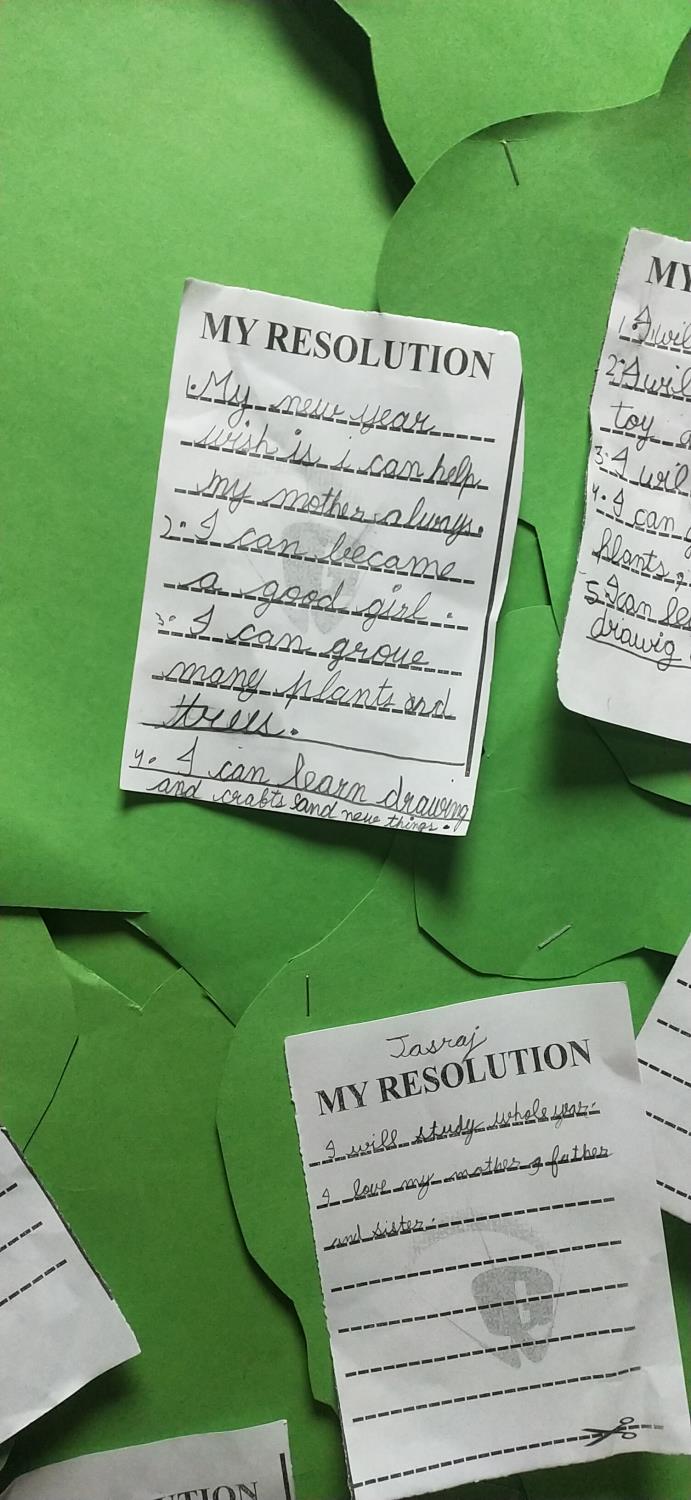 MY RESOLUTION
1. My new year
wish is i can help
my mother always.
2. I can became
a good girl.
3. I can groue
many plants and
trees.
4. I can learn drawing
and crabts and new things.
MY
1. I wil
2. I wil
toy
3. I wil
4. I can
plants
5. I can le
drawig
Jasraj
MY RESOLUTION
I will study whole year.
I love my mother father
and sister.
UTION